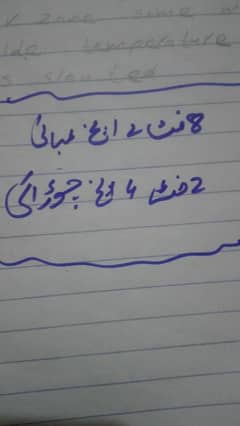 r zone some
ide temperature
s slowed
8 فٹ 2 انچ لمبائی
2 فٹ 4 انچ چوڑائی